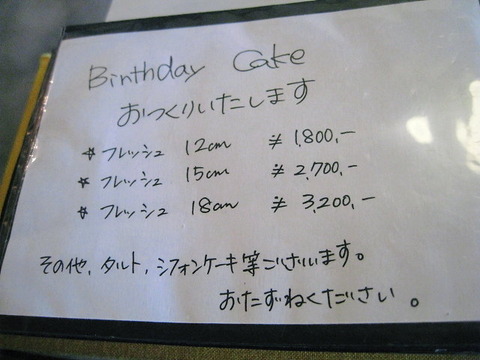 Birthday Cake
おつくりいたします
☆ フレッシュ 12cm ¥1,800,-
☆ フレッシュ 15cm ¥2,700,-
☆ フレッシュ 18cm ¥3,200,-
その他、タルト、シフォンケーキ等ございます。
おたずねください。